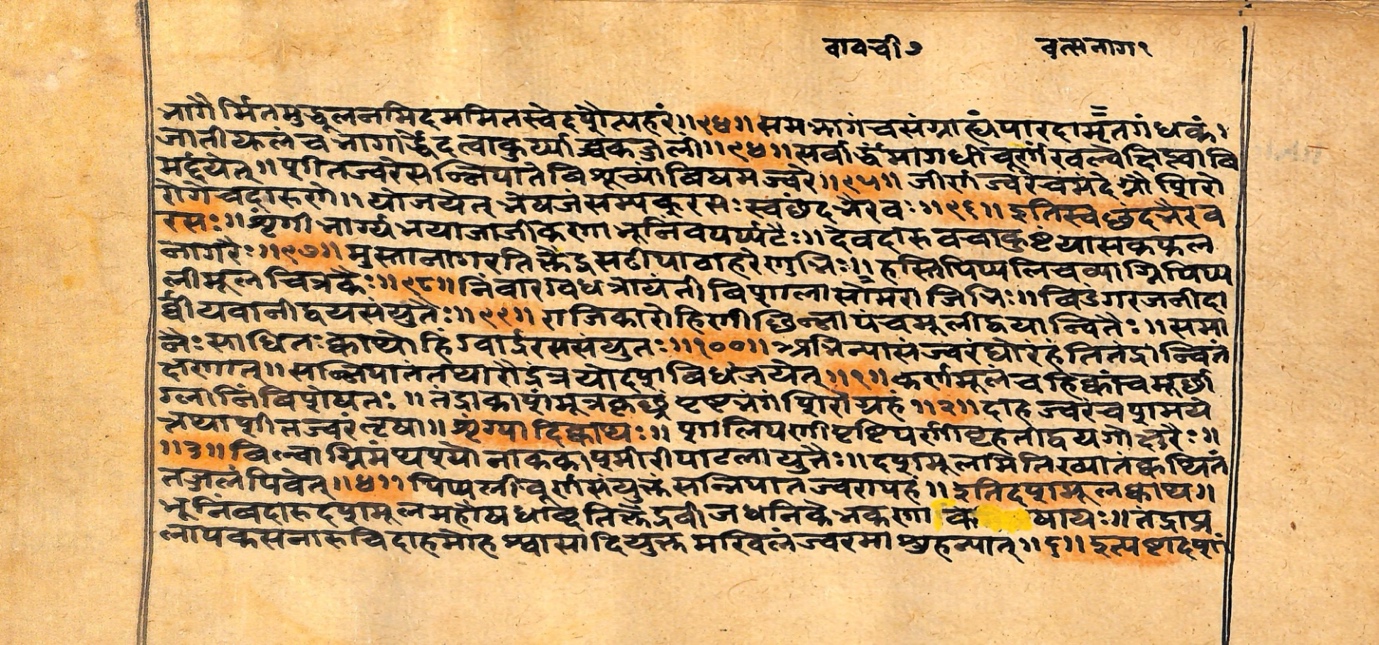 बावची७ वत्सनाग१
भागै र्मितमुद्धूलनमिदममितस्वेदशैत्यहरं॥९४॥समभागंचसंग्राह्यंपारदामृतगंधकं।
जातीफलं च भागार्द्धंदत्वाकुर्य्याच्चकज्जलीं॥९५॥सर्वार्द्धंमागधीचूर्णंखल्वेक्षिप्त्वावि
मर्द्दयेत्॥शीतज्वरेसन्निपातेविशूच्यांविषमज्वरे॥९५॥जीर्णज्वरेचमंदेग्नौशिरो
रोगेचदारुणे॥योजयेत्भेषजंसम्यक्रसःस्वछंदभैरवः॥९६॥इतिस्वछंदभैरव
रसः॥शृंगीभार्ग्यभयाजाजीकणाभूनिंबपर्प्पटैः॥देवदारुवचाकुष्टंयासकट्फल
नागरैः॥९७॥मुस्तानागरतिक्तेंद्रसटीपाठाहरेणुभिः॥हस्तिपिप्पलिचव्याग्निपिप्प
लीमूलचित्रकैः॥९८॥निंबारग्वधत्रायंतीविशालासोमराजिभिः॥विडंगरजनीदा
र्वीयवानीद्वयसंयुतैः॥९९॥राजिकारोहिणीछिन्नापंचमूलीद्वयान्वितैः॥समां
शैःसाधितःक्वाथोहिंग्वार्द्ररससंयुतः॥१००॥अभिन्यासंज्वरंघोरंहंतितंद्रान्वितं
क्षणात्॥सन्निपाततथारौद्रंत्रयोदशविधंजयेत्॥१॥कर्णमूलंचहिक्कांचमूर्छां
ग्लानिंविशेषतः॥तंद्राकाशंमूत्रकृछ्रंपृष्टभंगंशिरोग्रहं॥२॥दाहज्वरंचशमयं
त्तथाशीतज्वरंतृषा॥शृंग्यादिक्वाथः॥शालिपर्णीपृष्टिपर्णीबृहतीद्वयगोक्षुरैः॥
॥३॥बिल्वाग्निमंथश्योनाककाश्मीरीपाटलायुतैः॥दशमूलमितिख्यातंक्वथितं
तज्जलंपिबेत्॥४॥पिप्पलीचूर्णसंयुक्तंसन्निपातज्वरापहं॥इतिदशमूलक्वाथ॥
भूनिंबदारुदशमूलमहौषधाब्दतिक्तेंद्रबीजधनिकेभकणा क षायः॥तंद्राप्र
लापकसनारुचिदाहमोहश्वासादियुक्तमखिलंज्वरमाशुहन्यात्॥६॥इत्यष्टादशां